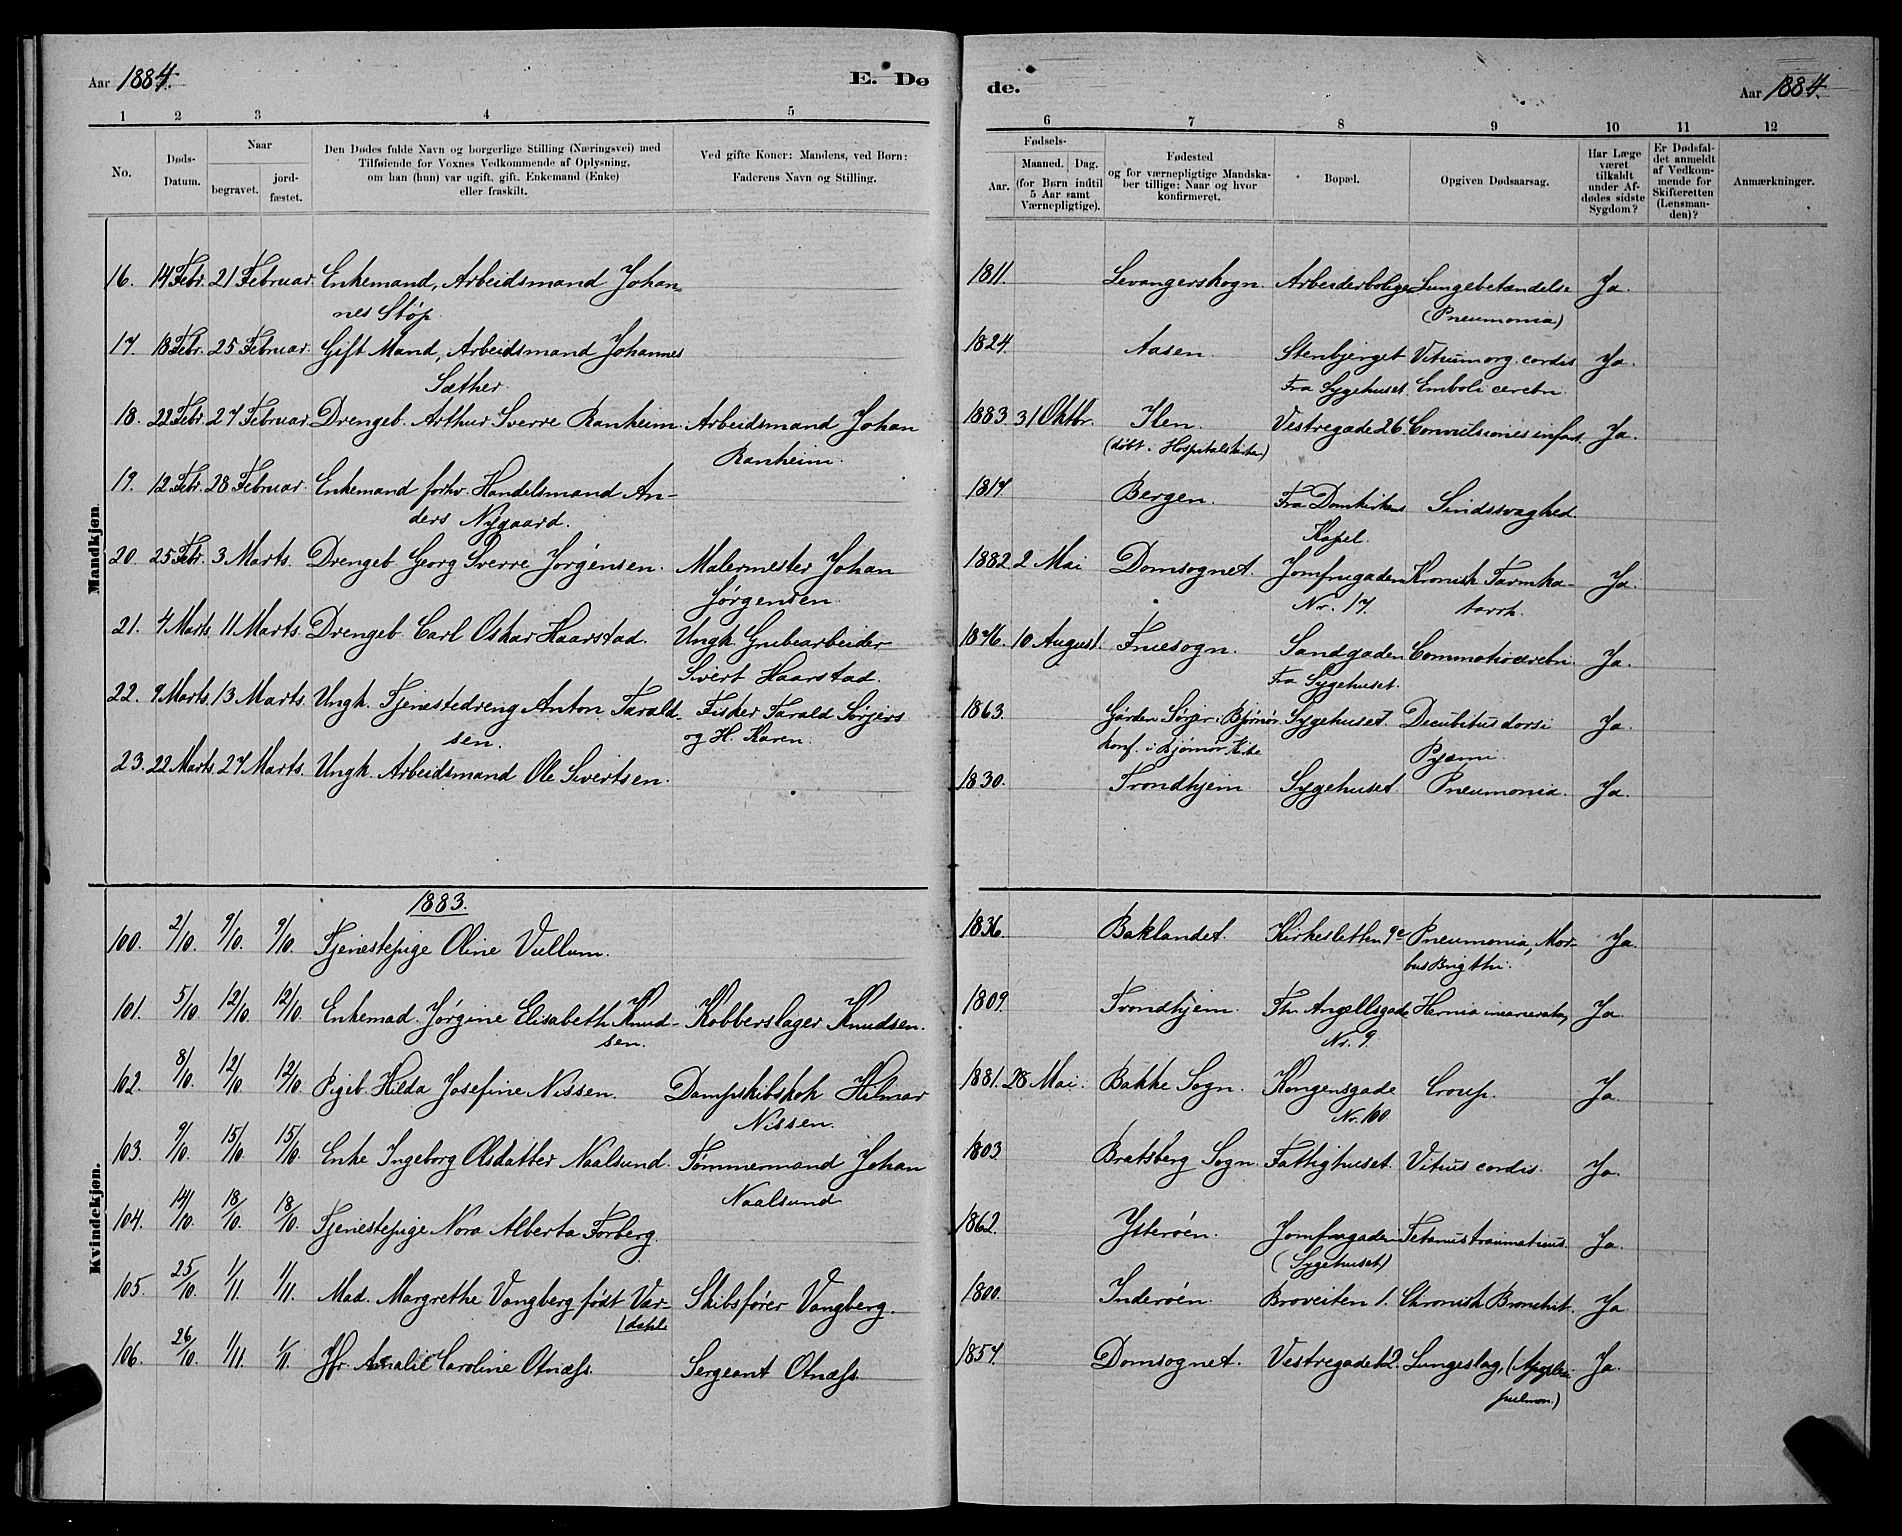 Aar 1884. E. Dø
1 2 3 4 5
No. Døds-Datum. Naar begravet. jord-fæstet. Den Dødes fulde Navn og borgerlige Stilling (Næringsvei) med Tilføiende for Voxnes Vedkommende af Oplysning, om han (hun) var ugift, gift, Enkemand (Enke) eller fraskilt. Ved gifte Koner: Mandens, ved Børn: Faderens Navn og Stilling.
Mandkjøn.
16. 14 Febr. 21 Februar. Enkemand, Arbeidsmand Johan-
nes Støp.
17. 18 Febr. 25 Februar. Gift Mand, Arbeidsmand Johannes
Sæther.
18. 22 Febr. 27 Februar. Drengeb. Arthur Sverre Ranheim. Arbeidsmand Johan
Ranheim.
19. 12 Febr. 28 Februar. Enkemand forhv. Handelsmand An-
ders Nygaard.
20. 25 Febr. 3 Marts. Drengeb Georg Sverre Jørgensen. Malermester Johan
Jørgensen.
21. 4 Marts. 11 Marts. Drengeb. Carl Oskar Haarstad. Ungk. Grubearbeider
Sivert Haarstad.
22. 9 Marts. 13 Marts. Ungk. Tjenestedreng Anton Tarald- Fisker Tarald Sørjers
sen. og H. Karen.
23. 22 Marts. 27 Marts. Ungk. Arbeidsmand Ole Sivertsen.
Kvindekjøn.
1883.
100. 2/10. 9/10. 9/10. Tjenestepige Oline Vullum.
101. 5/10. 12/10. 12/10. Enkemad. Jørgine Elisabeth Knud- Kobberslager Knudsen.
sen.
102. 8/10. 12/10. 12/10. Pigeb. Hilda Josefine Nissen. Dampskibskok Hilmar
Nissen.
103. 9/10. 15/10. 15/10. Enke Ingeborg Olsdatter Naalsund. Tømmermand Johan
Naalsund
104. 14/10. 18/10. 18/10. Tjenestepige Nora Alberta Forberg.
105. 25/10. 1/11. 1/11. Mad. Margrethe Vangberg født Vær- Skibsfører Vangberg.
dahl
106. 26/10. 1/11. 1/11. Jfr. Amalie Caroline Otnæss. Sergeant Otnæss
de. Aar 1884.
6 7 8 9 10 11 12
Fødsels-
Aar. Maaned. Dag. (for Børn indtil 5 Aar samt Værnepligtige). Fødested og for værnepligtige Mandska-ber tillige: Naar og hvor konfirmeret. Bopæl. Opgiven Dødsaarsag. Har Læge været tilkaldt under Af-dødes sidste Sygdom? Er Dødsfal-det anmeldt af Vedkom-mende for Skifteretten (Lensman-den)? Anmærkninger.
1811. Levangerskogn. Arbeiderboliger Lungebetændelse Ja.
(Pneumonia)
1824. Aasen. Stenbjerget Vitium org. cordis Ja.
Fra Sygehuset. Emboli cerebri
1883. 31 Oktbr. Ilen. Vestregade 26. Convulsiones infant. Ja.
(døbt i Hospitalskirken)
1817 Bergen. Fra Domkirkens Sindssvaghed.
Kapel.
1882. 2 Mai Domsognet. Jomfrugaden Kronisk Tarmka- Ja.
Nr. 17. tarrh.
1876. 10 August. Fruesogn. Sandgaden Commotio cerebri Ja.
Fra Sygehuset.
1863. Gården Sørjer i Bjørnør. Sygehuset. Decubitus dorsi Ja.
konf. i Bjørnør Kirke Pyæmi.
1830. Trondhjem Sygehuset Pneumonia. Ja.
1836. Baklandet. Kirkesletten 9c Pneumonia, Mor- Ja.
bus Brigthi.
1809. Trondhjem. Th. Angellsgade Hernia incarcerata, Ja
Nr. 9.
1881. 28 Mai. Bakke Sogn. Kongensgade Croup. Ja
Nr. 100.
1803 Bratsberg Sogn. Fattighuset. Vitius cordis. Ja.
1862. Ytterøen. Jomfrugaden Tetanus traumaticus. Ja.
(Sygehuset)
1800. Inderøen. Broveiten 1. Chronisk Bronchit. Ja
1857. Domsognet. Vestregade 12. Lungeslag, (Apoplexi Ja.
pulmon.)